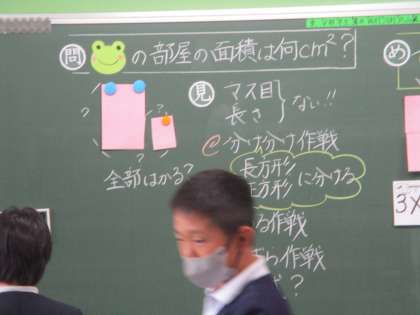 問 の部屋の面積は何cm²?
見 マス目
長さ
ない!!
?
?
?
?
全部はかる?
分け分け作戦
長方形
正方形
に分ける
る作戦
ら作戦
?
め
3×